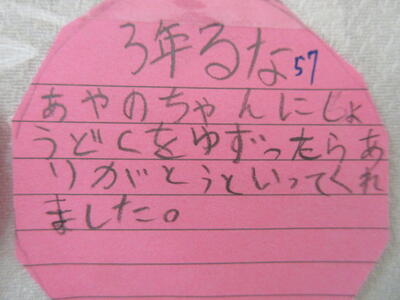 3年るな57
あやのちゃんにしょ
うどくをゆずったらあ
りがとうといってくれ
ました。